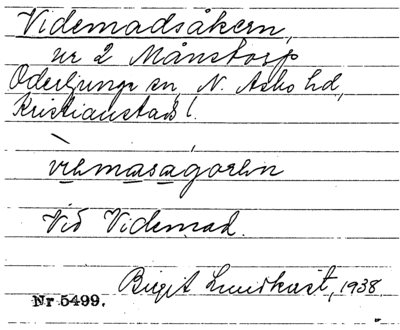 Videmadsåkern,
nr 2 Månstorp
Oderljunga sn, N. Åsbo hd,
Kristianstads l.
Vid Videmad.
Birgit Lundkvist, 1938
Nr 5499.